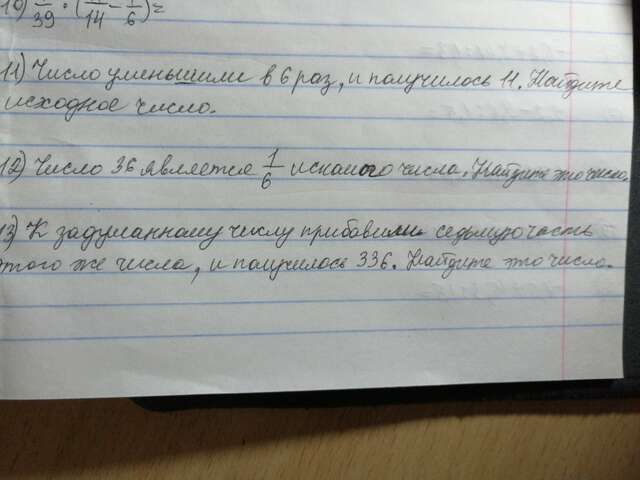 10) /39 · (/14 - 1/6) =
11) Число уменьшили в 6 раз, и получилось 11. Найдите
исходное число.
12) Число 36 является 1/6 искомого числа. Найдите это число.
13) К задуманному числу прибавили седьмую часть
этого же числа, и получилось 336. Найдите это число.